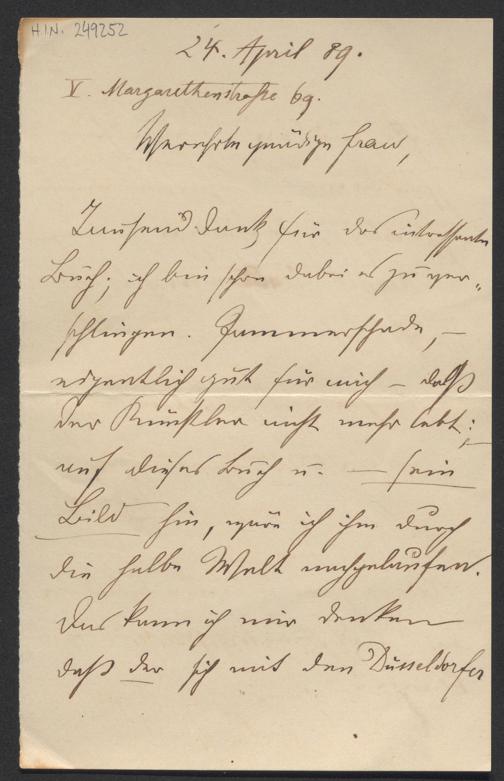 H.I.N. 249252
24. April 89.
V. Margarethenstraße 69.
Verehrte gnädige Frau,
Tausend Dank für das interessante
Buch; ich bin schon dabei es zu ver-
schlingen. Jammerschade, –
eigentlich gut für mich – daß
der Künstler nicht mehr lebt;
auf dieses Buch u. — sein
Bild hin, wäre ich ihm durch
die halbe Welt nachgelaufen.
Das kann ich mir denken
daß der sich mit den Düsseldorfer